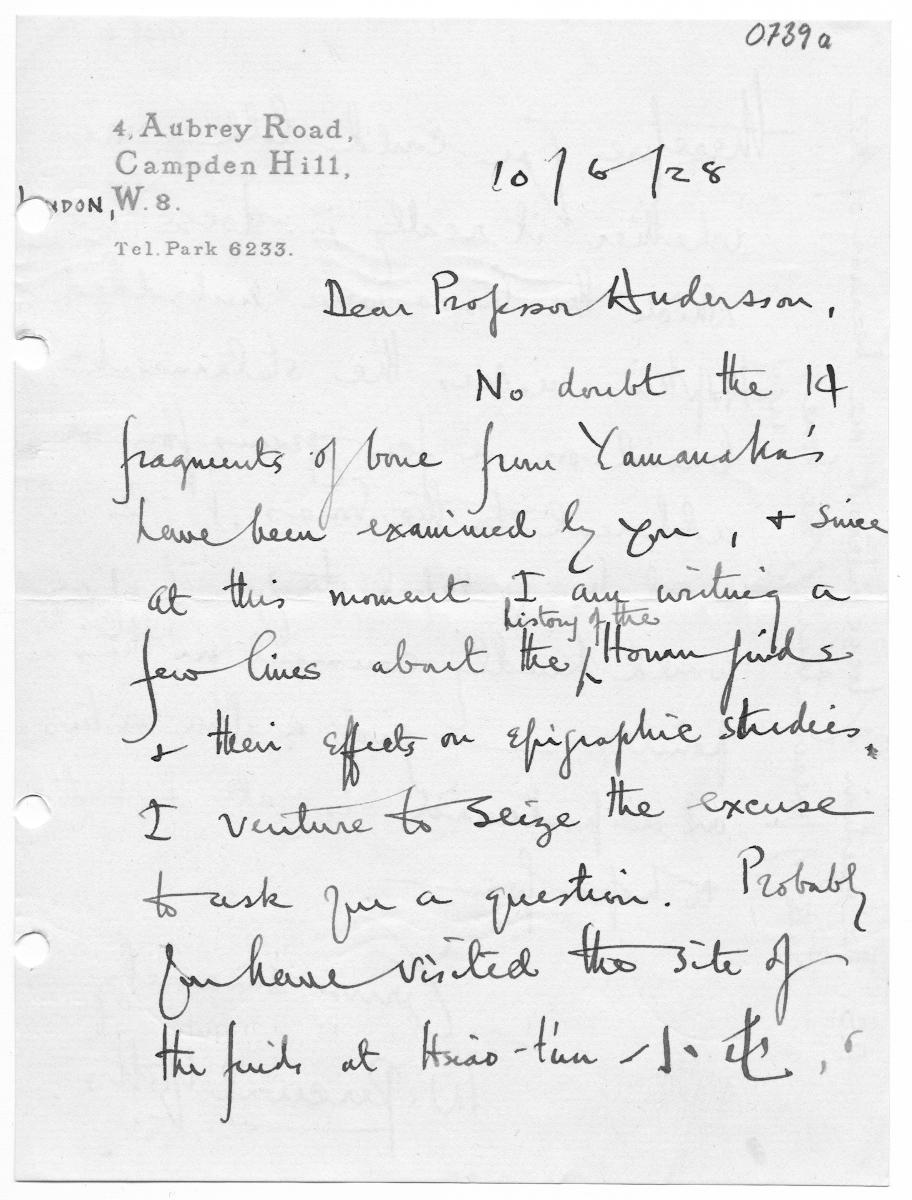 0739a
4, Aubrey Road,
Campden Hill,
LONDON, W. 8.
Tel. Park 6233.
10/6/28
Dear Professor Andersson,
No doubt the 14
fragments of bone from Yamanaka's
have been examined by you, + since
at this moment I am writing a
few lines about the history of the Honan finds
+ their effects on epigraphic studies,
I venture to seize the excuse
to ask you a question. Probably
you have visited the site of
the finds at Hsiao-t'un 小屯,